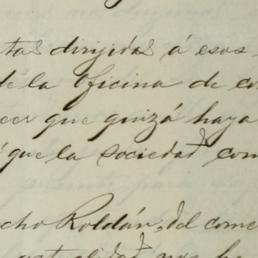 tas dirijidas á esos
de la oficina de co
cer que quizá haya
que la sociedad com
cho Roldán, del come